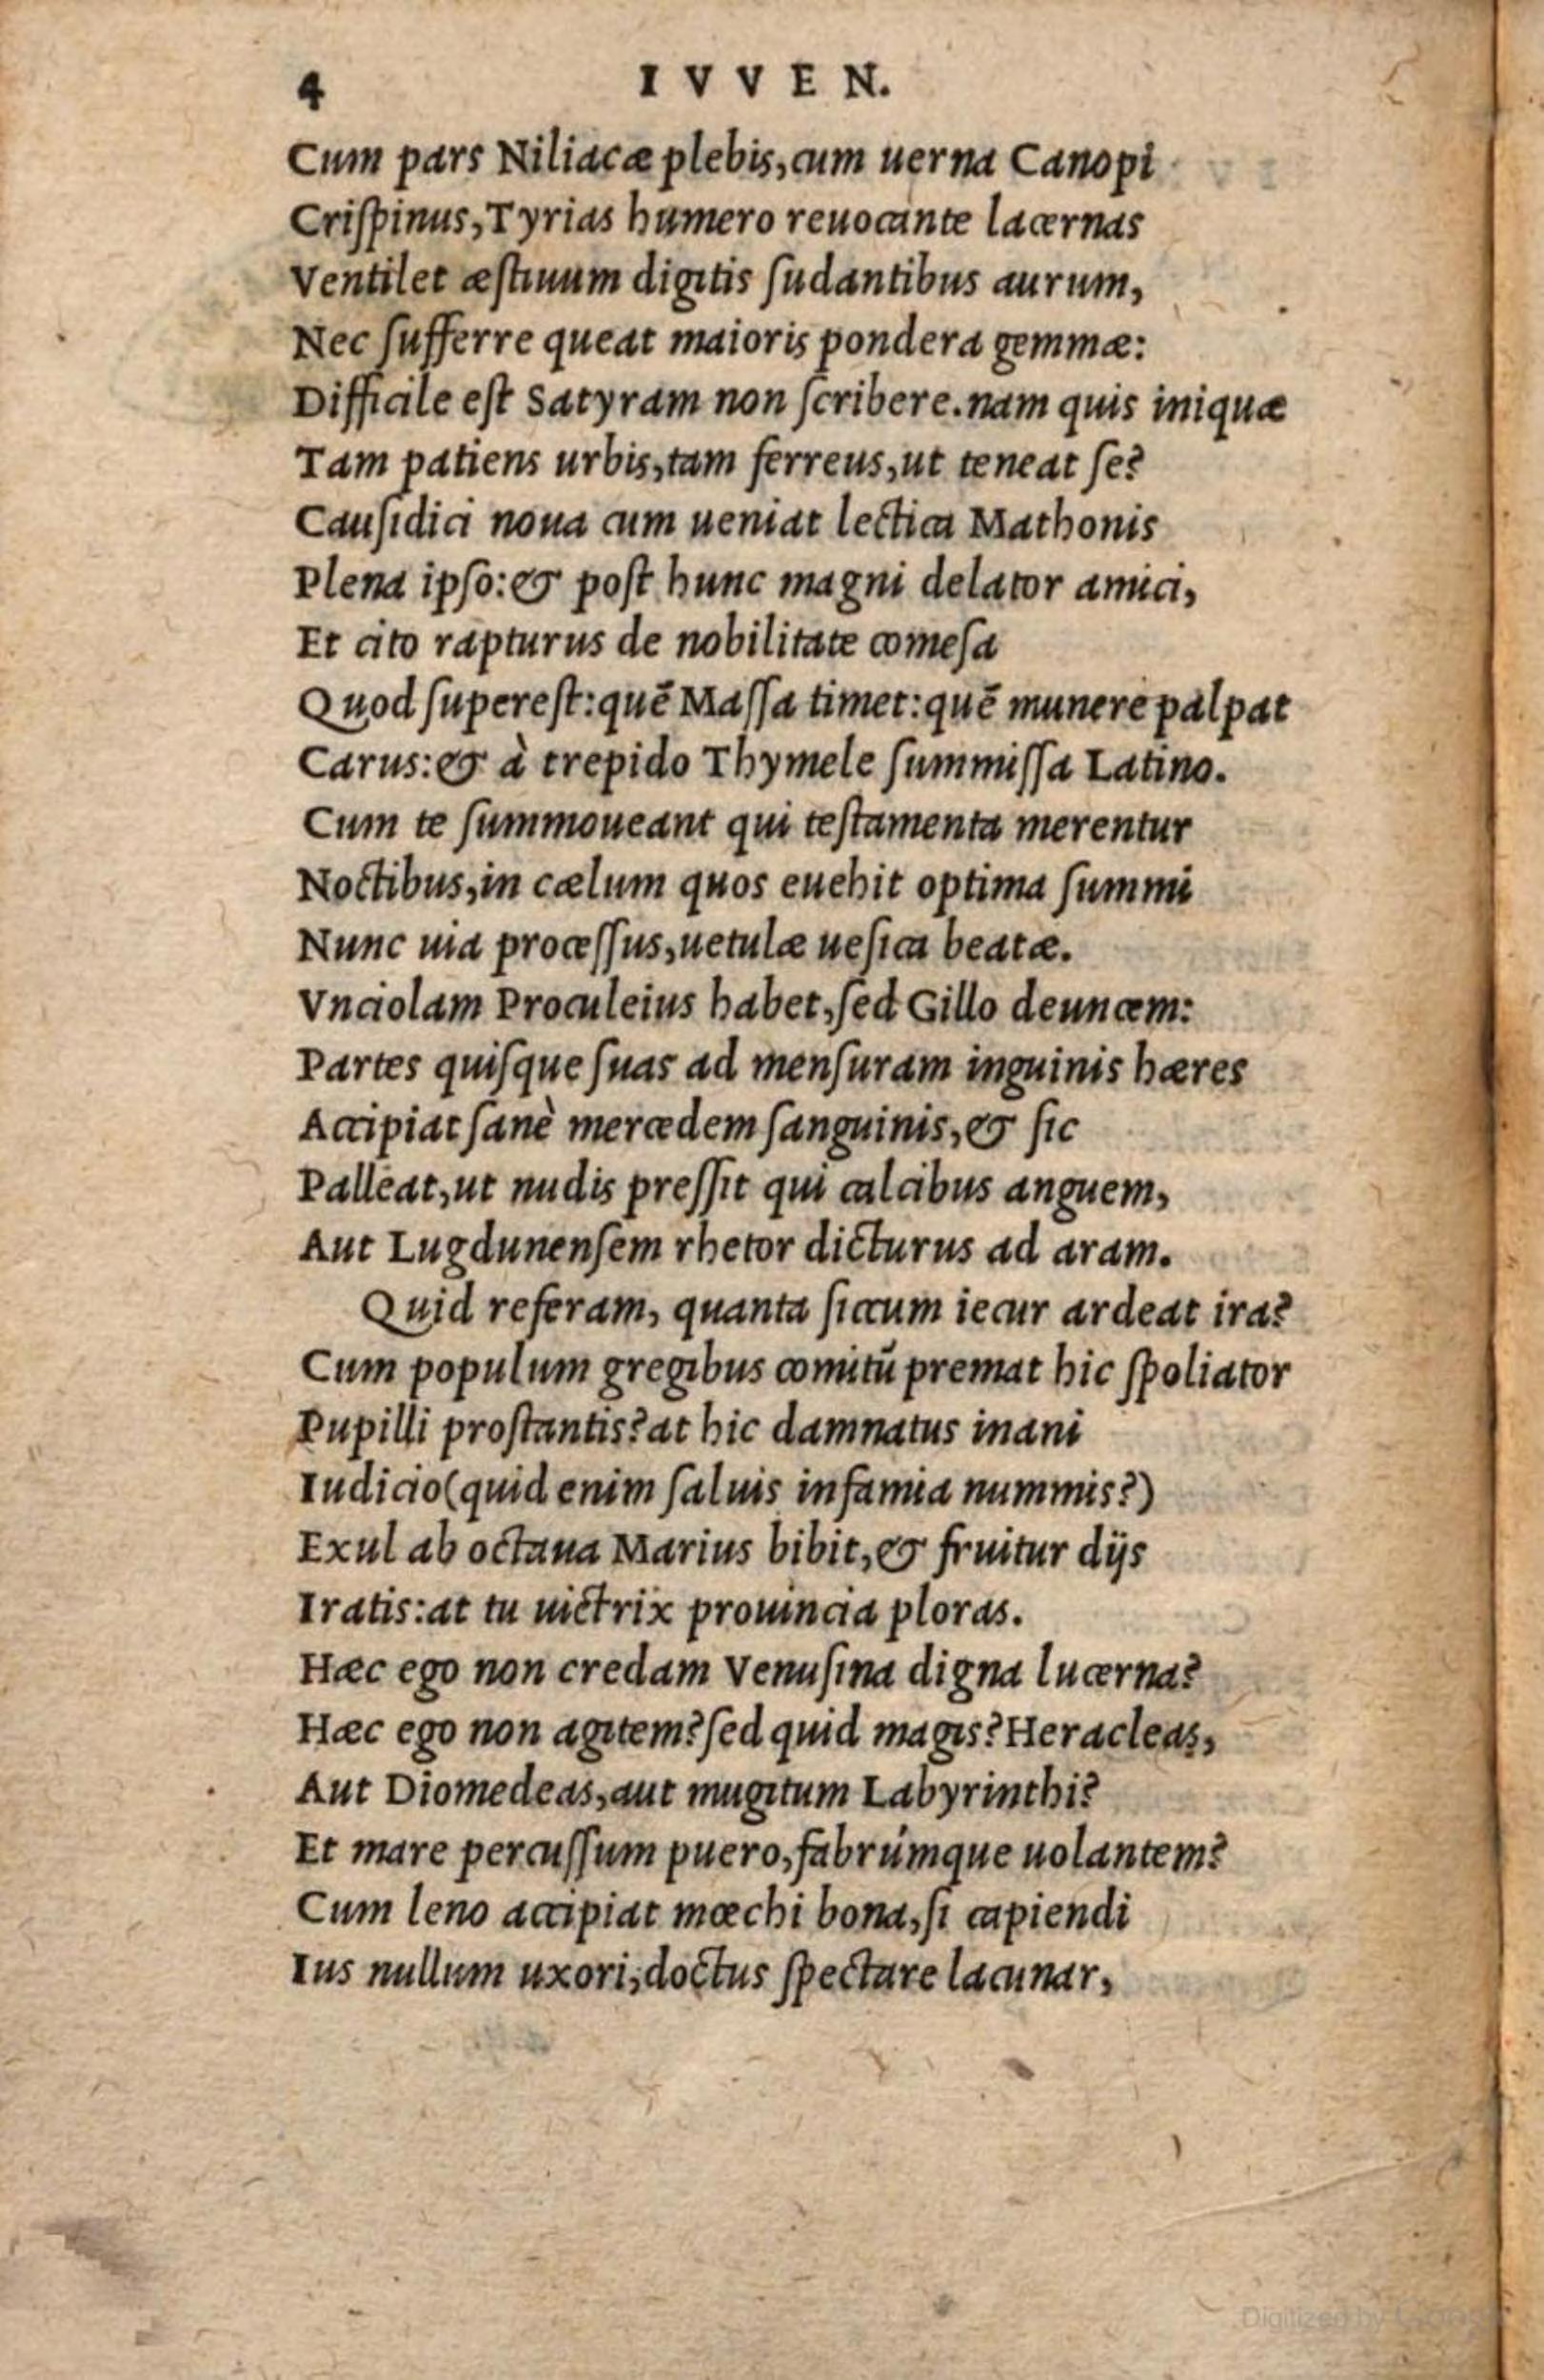 4 IVVEN.
Cum pars Niliacæ plebis,cum uerna Canopi
Criſpinus,Tyrias humero reuocante lacernas
Ventilet æſtiuum digitis ſudantibus aurum,
Nec ſufferre queat maioris pondera gemmæ:
Difficile eſt Satyram non ſcribere.nam quis iniquæ
Tam patiens urbis,tam ferreus,ut teneat ſe?
Cauſidici noua cum ueniat lectica Mathonis
Plena ipſo:& poſt hunc magni delator amici,
Et cito rapturus de nobilitate comeſa
Quod ſupereſt:quē Maſſa timet:quē munere palpat
Carus:& à trepido Thymele ſummiſſa Latino.
Cum te ſummoueant qui teſtamenta merentur
Noctibus,in cælum quos euehit optima ſummi
Nunc uia proceſſus,uetulæ ueſica beatæ.
Vnciolam Proculeius habet,ſed Gillo deuncem:
Partes quiſque ſuas ad menſuram inguinis hæres
Accipiat ſanè mercedem ſanguinis,& ſic
Palleat,ut nudis preſſit qui calcibus anguem,
Aut Lugdunenſem rhetor dicturus ad aram.
Quid referam, quanta ſiccum iecur ardeat ira?
Cum populum gregibus comitū premat hic ſpoliator
Pupilli proſtantis?at hic damnatus inani
Iudicio(quid enim ſaluis infamia nummis?)
Exul ab octaua Marius bibit,& fruitur dijs
Iratis:at tu uictrix prouincia ploras.
Hæc ego non credam Venuſina digna lucerna?
Hæc ego non agitem?ſed quid magis?Heracleas,
Aut Diomedeas,aut mugitum Labyrinthi?
Et mare percuſſum puero,fabrúmque uolantem?
Cum leno accipiat mœchi bona,ſi capiendi
Ius nullum uxori,doctus ſpectare lacunar,
Digitized by Google